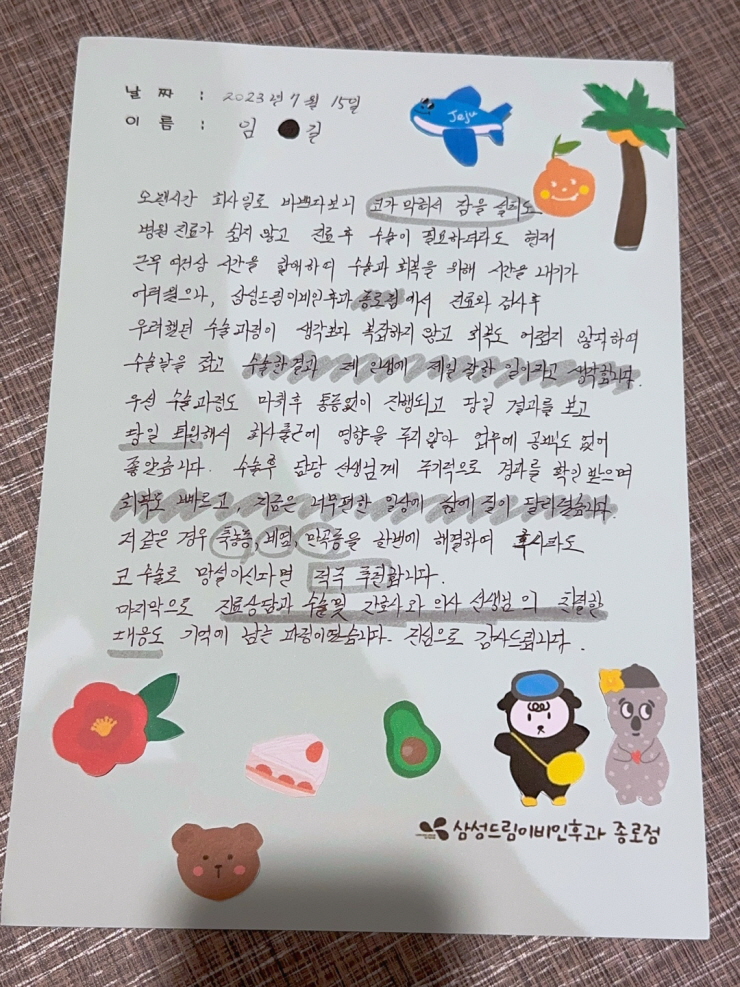 날 짜 : 2023년 7월 15일
이 름 : 임 ●길
Jeju
오랜시간 회사일로 바쁘다보니 코가 막혀서 잠을 설쳐도
병원 진료가 쉽지 않고 진료후 수술이 필요하더라도 현재
근무 여건상 시간을 할애하여 수술과 회복을 위해 시간을 내기가
어려웠으나, 삼성드림이비인후과 종로점에서 진료와 검사후
우려했던 수술과정이 생각보다 복잡하지 않고 회복도 어렵지 않다하여
수술날을 잡고 수술한결과 제 인생에 제일 잘한 일이라고 생각합니다.
우선 수술과정도 마취후 통증없이 진행되고 당일 결과를 보고
당일 퇴원해서 회사출근에 영향을 주지않아 업무에 공백도 없어
좋았습니다. 수술후 담당 선생님께 주기적으로 경과를 확인 받으며
회복도 빠르고, 지금은 너무편한 일상에 삶에 질이 달라졌습니다.
저 같은 경우 축농증, 비염, 만곡증을 한번에 해결하여 혹시라도
코 수술로 망설이신다면 적극 추천합니다.
마지막으로 진료상담과 수술및 간호사와 의사 선생님의 친절한
대응도 기억에 남는 과정이였습니다. 진심으로 감사드립니다.
삼성드림이비인후과 종로점